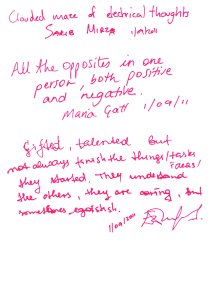 Clouded maze of electrical thoughts
All the opposites in one
person, both positive
and negative.
Maria Gatt 1/09/11
Gifted, talented but
not always finish the things/tasks
they started. They understand
the others, they are caring, but
sometimes egotistish.